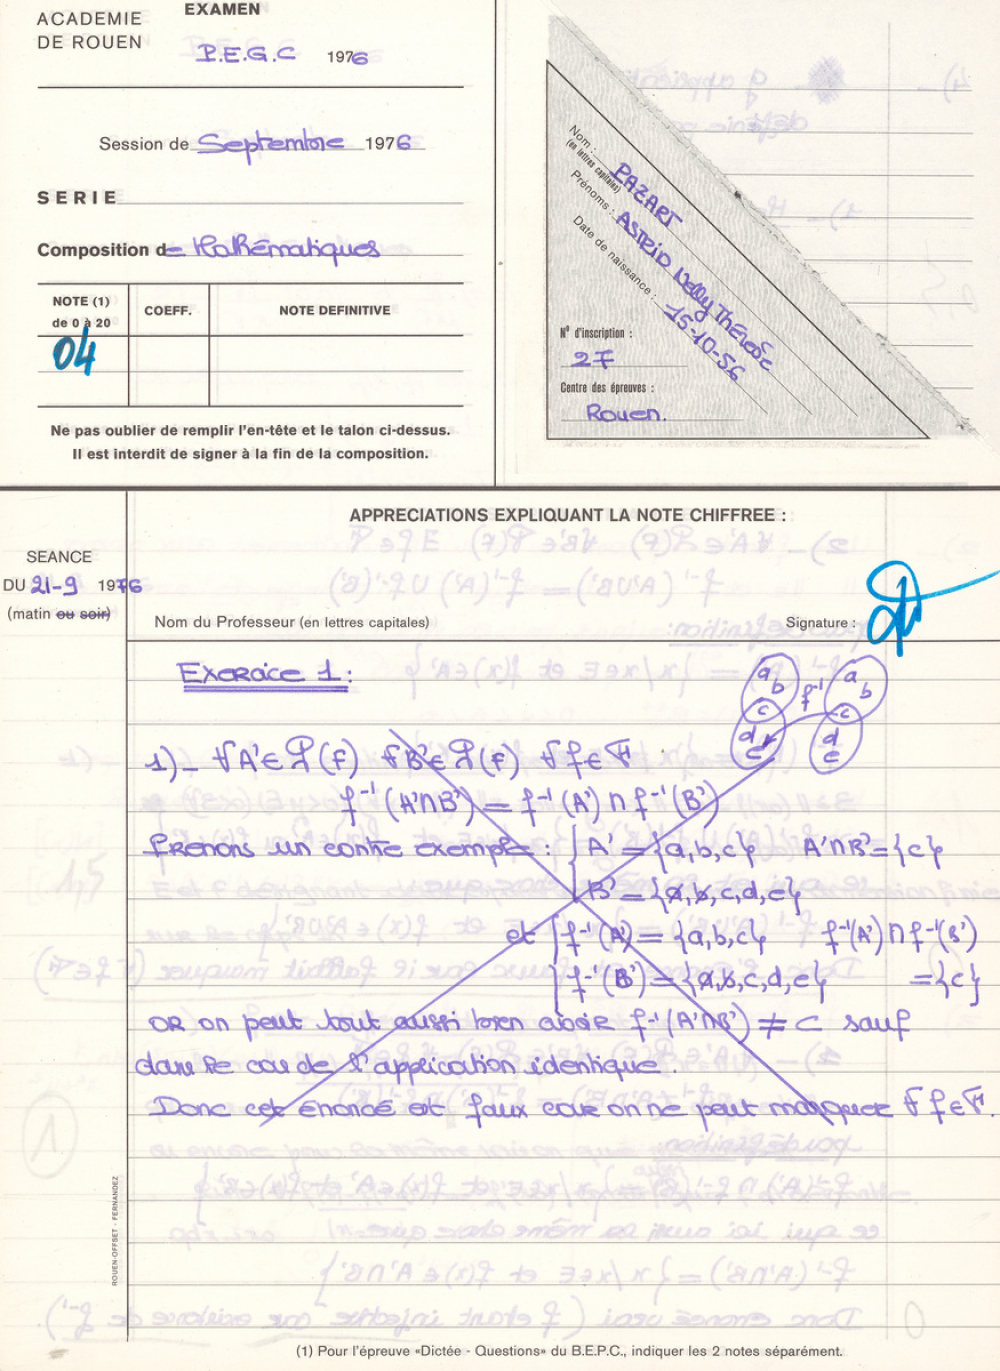 ACADEMIE
DE ROUEN
EXAMEN
P.E.G.C 1976
Session de Septembre 1976
SERIE
Composition de Mathématiques
NOTE (1)
de 0 à 20
COEFF.
NOTE DEFINITIVE
04
Ne pas oublier de remplir l'en-tête et le talon ci-dessus.
Il est interdit de signer à la fin de la composition.
Nom :
(en lettres capitales)
PAZART
Prénoms : ASTRID Nelly Thérèse
Date de naissance : 15-10-56
N° d'inscription :
27
Centre des épreuves :
Rouen.
APPRECIATIONS EXPLIQUANT LA NOTE CHIFFREE :
SEANCE
DU 21-9 1976
(matin ou soir)
Nom du Professeur (en lettres capitales)
Signature :
Exercice 1 :
a b c d e f⁻¹ a b c d e
1)_ ∀A'∈ P(F) ∀B'∈ P(F) ∀f∈ F
f⁻¹(A'∩B') = f⁻¹(A') ∩ f⁻¹(B')
Prenons un contre exemple : { A' = {a,b,c} A'∩B'={c}
B' = {a,b,c,d,e}
et { f⁻¹(A') = {a,b,c} f⁻¹(A') ∩ f⁻¹(B')
f⁻¹(B') = {a,b,c,d,e} ={c}
OR on peut tout aussi bien avoir f⁻¹(A'∩B') ≠ C sauf
dans le cas de l'application identique.
Donc cet énoncé est faux car on ne peut marquer ∀ f∈F.
ROUEN-OFFSET - FERNANDEZ
(1) Pour l'épreuve «Dictée - Questions» du B.E.P.C., indiquer les 2 notes séparément.